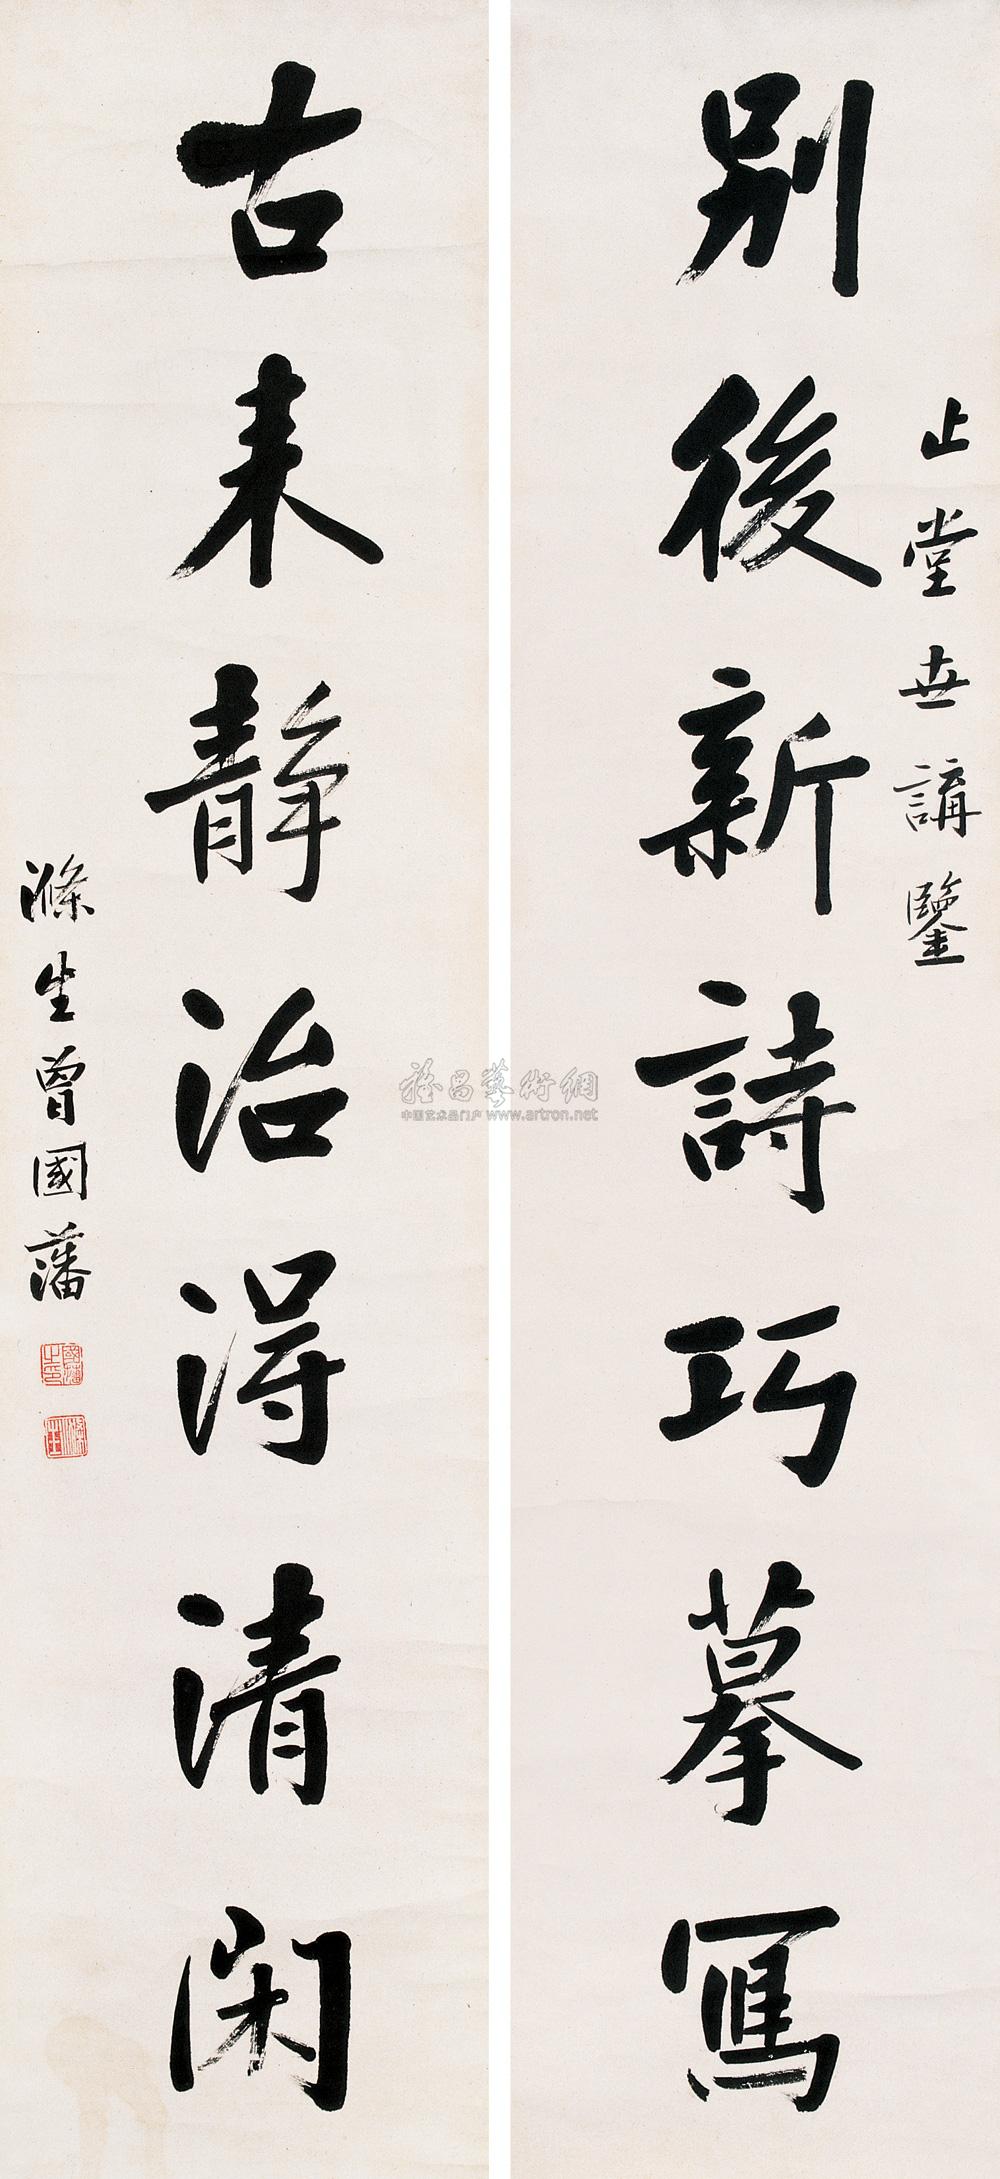 止堂世講鑒
別後新詩巧摹寫
古來靜治得清閑
滌生曾國藩
國藩之印
滌生
雅昌藝術網
中国艺术品门户 www.artron.net